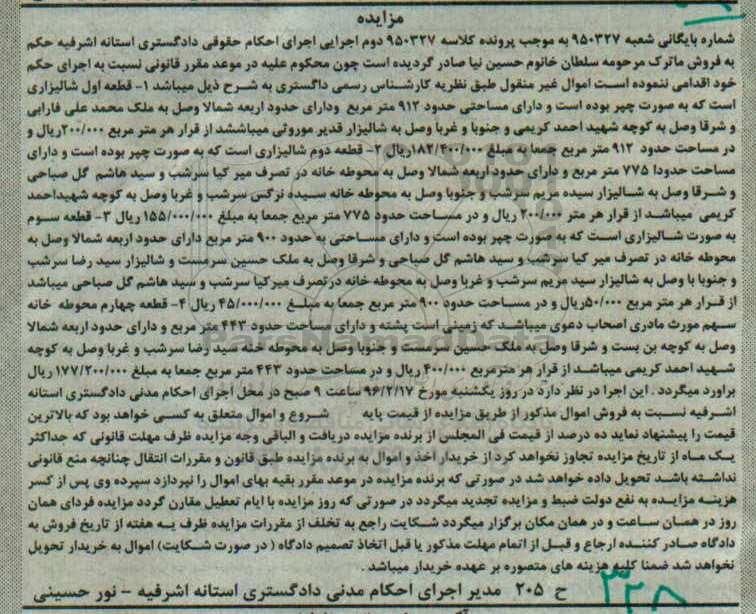 مزایده
شماره بایگانی شعبه ۹۵۰۳۲۷ به موجب پرونده کلاسه ۹۵۰۳۲۷ دوم اجرایی اجرای احکام حقوقی دادگستری استانه اشرفیه حکم
به فروش ماترک مرحومه سلطان خانوم حسین نیا صادر گردیده است چون محکوم علیه در موعد مقرر قانونی نسبت به اجرای حکم
خود اقدامی ننموده است اموال غیر منقول طبق نظریه کارشناس رسمی داگستری به شرح ذیل میباشد ۱- قطعه اول شالیزاری
است که به صورت چپر بوده است و دارای مساحتی حدود ۹۱۲ متر مربع ودارای حدود اربعه شمالا وصل به ملک محمد علی فارابی
و شرقا وصل به کوچه شهید احمد کریمی و جنوبا و غربا وصل به شالیزار قدیر موروثی میباششد از قرار هر متر مربع ۲۰۰/۰۰۰ریال و
در مساحت حدود ۹۱۲ متر مربع جمعا به مبلغ ۱۸۲/۴۰۰/۰۰۰ریال ۲- قطعه دوم شالیزاری است که به صورت چپر بوده است و دارای
مساحت حدودا ۷۷۵ متر مربع و دارای حدود اربعه شمالا وصل به محوطه خانه در تصرف میر کیا سرشب و سید هاشم گل صباحی
و شرقا وصل به شالیزار سیده مریم سرشب و جنوبا وصل به محوطه خانه سیده نرگس سرشب و غربا وصل به کوچه شهیداحمد
کریمی میباشد از قرار هر متر ۲۰۰/۰۰۰ ریال و در مساحت حدود ۷۷۵ متر مربع جمعا به مبلغ ۱۵۵/۰۰۰/۰۰۰ ریال ۳- قطعه سوم
به صورت شالیزاری است که به صورت چپر بوده است و دارای مساحتی به حدود ۹۰۰ متر مربع دارای حدود اربعه شمالا وصل به
محوطه خانه در تصرف میر کیا سرشب و سید هاشم گل صباحی و شرقا وصل به ملک حسین سرمست و شالیزار سید رضا سرشب
و جنوبا با وصل به شالیزار سید مریم سرشب و غربا وصل به محوطه خانه درتصرف میرکیا سرشب و سید هاشم گل صباحی میباشد
از قرار هر متر مربع ۵۰/۰۰۰ریال و در مساحت حدود ۹۰۰ متر مربع جمعا به مبلغ ۴۵/۰۰۰/۰۰۰ ریال ۴- قطعه چهارم محوطه خانه
سهم مورث مادری اصحاب دعوی میباشد که زمینی است پشته و دارای مساحت حدود ۴۴۳ متر مربع و دارای حدود اربعه شمالا
وصل به کوچه بن بست و شرقا وصل به ملک حسین سرمست و جنوبا وصل به محوطه خنه سید رضا سرشب و غربا وصل به کوچه
شهید احمد کریمی میباشد از قرار هر مترمربع ۴۰۰/۰۰۰ ریال و در مساحت حدود ۴۴۳ متر مربع جمعا به مبلغ ۱۷۷/۲۰۰/۰۰۰ ریال
براورد میگردد . این اجرا در نظر دارد در روز یکشنبه مورخ ۹۶/۲/۱۷ ساعت ۹ صبح در محل اجرای احکام مدنی دادگستری استانه
اشرفیه نسبت به فروش اموال مذکور از طریق مزایده از قیمت پایه شروع و اموال متعلق به کسی خواهد بود که بالاترین
قیمت را پیشنهاد نماید ده درصد از قیمت فی المجلس از برنده مزایده دریافت و الباقی وجه مزایده ظرف مهلت قانونی که جداکثر
یک ماه از تاریخ مزایده تجاوز نخواهد کرد از خریدار اخذ و اموال به برنده مزایده طبق قانون و مقررات انتقال چنانچه منع قانونی
نداشته باشد تحویل داده خواهد شد در صورتی که برنده مزایده در موعد مقرر بقیه بهای اموال را نپردازد سپرده وی پس از کسر
هزینه مزایده به نفع دولت ضبط و مزایده تجدید میگردد در صورتی که روز مزایده با ایام تعطیل مقارن گردد مزایده فردای همان
روز در همان ساعت و در همان مکان برگزار میگردد شکایت راجع به تخلف از مقررات مزایده ظرف یه هفته از تاریخ فروش به
دادگاه صادر کننده ارجاع و قبل از اتمام مهلت مذکور یا قبل اتخاذ تصمیم دادگاه ( در صورت شکایت) اموال به خریدار تحویل
نخواهد شد ضمنا کلیه هزینه های متصوره بر عهده خریدار میباشد .
ح ۲۰۵ مدیر اجرای احکام مدنی دادگستری استانه اشرفیه - نور حسینی
۳۲۵
ParsNamadData